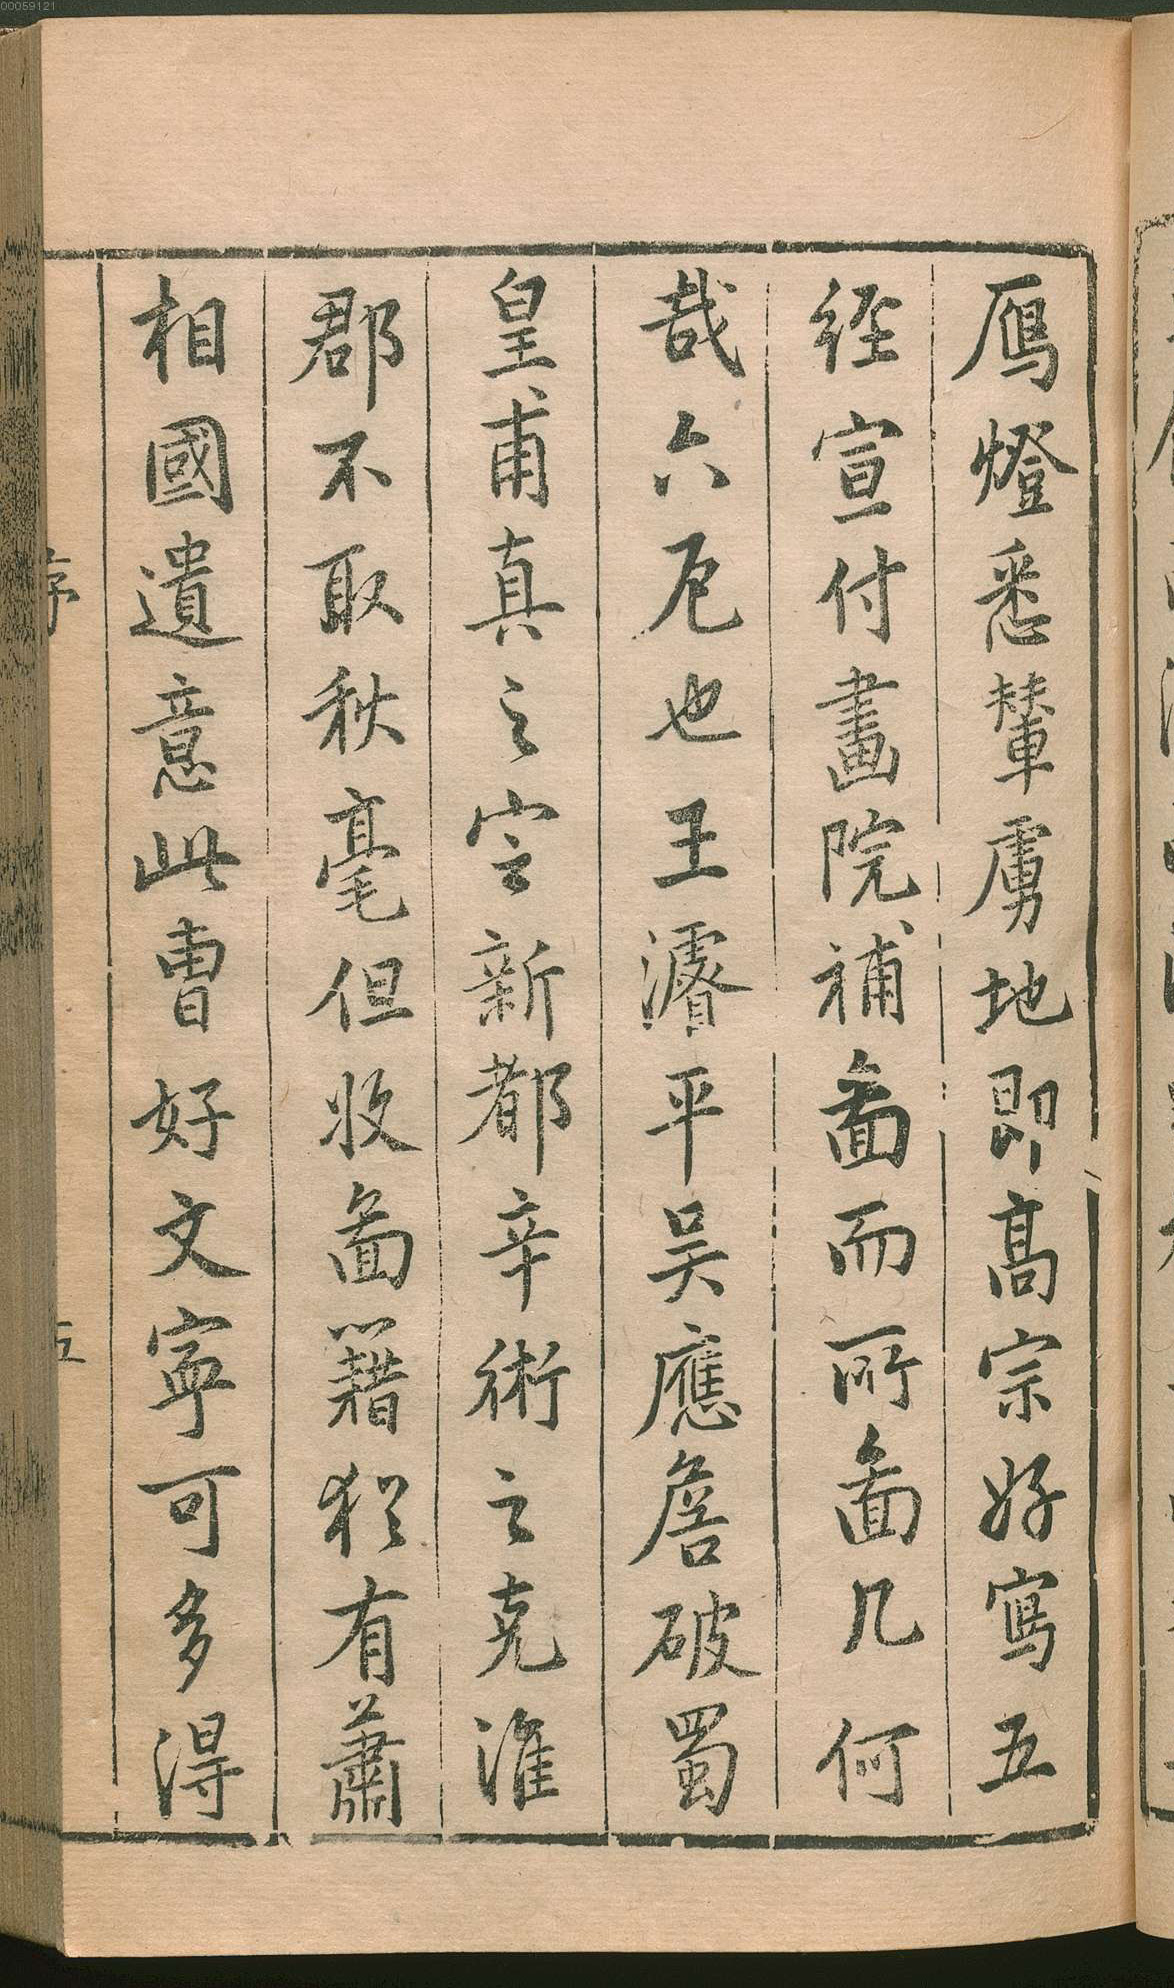 00059121
鴈燈悉輦虜地即高宗好寫五
經宣付畫院補啚而所啚几何
哉六厄也王濬平吴應詹破蜀
皇甫真之定新都辛術之克淮
郡不取秋毫但收啚籍猶有蕭
相國遺意此曹好文寧可多得
序
五